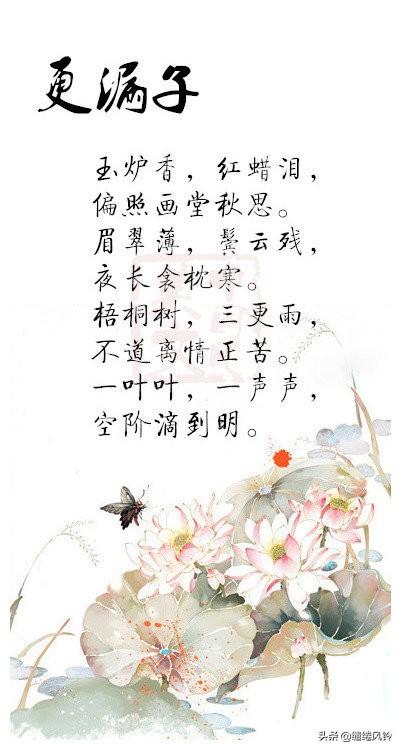 更漏子
玉炉香，红蜡泪，
偏照画堂秋思。
眉翠薄，鬓云残，
夜长衾枕寒。
梧桐树，三更雨，
不道离情正苦。
一叶叶，一声声，
空阶滴到明。
头条@缠绕风铃